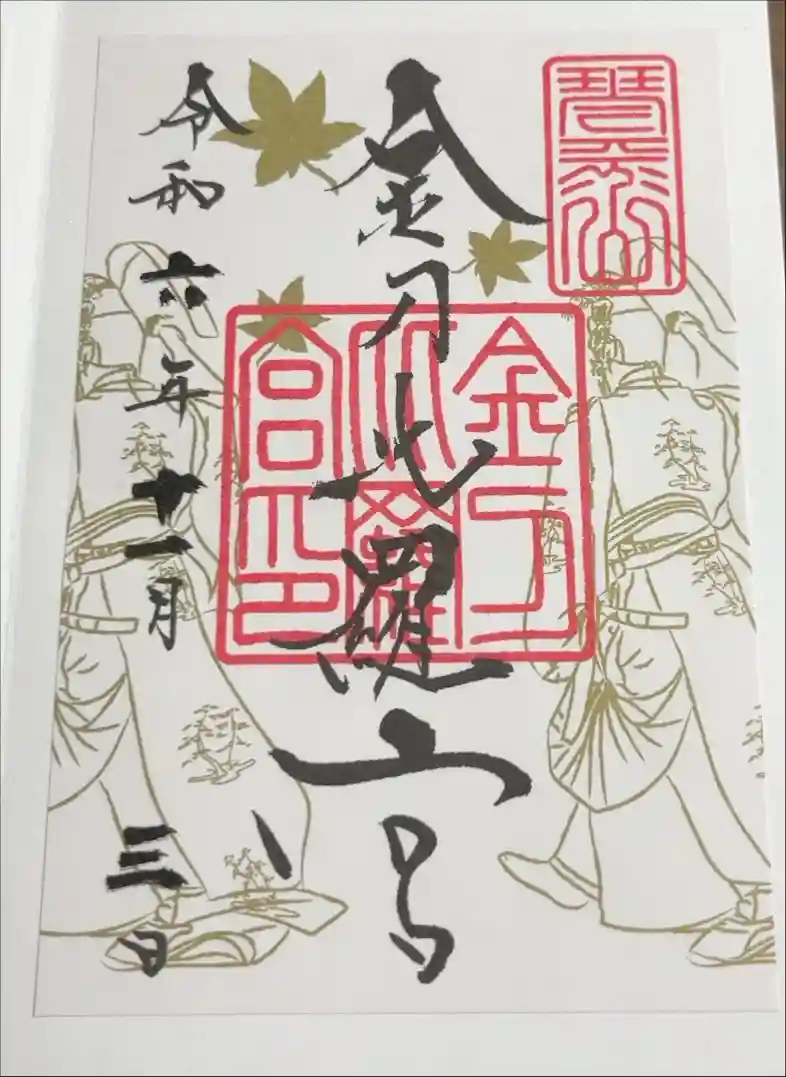 琴平山
金刀比羅宮
金刀
比羅
宮印
令和六年十一月三日